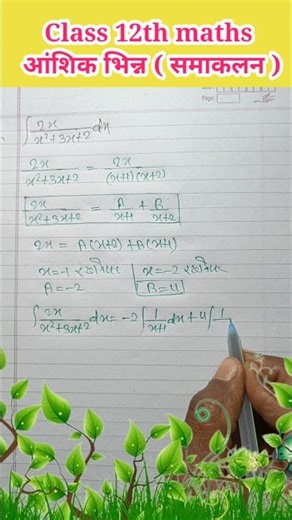 Class 12th maths
आंशिक भिन्न ( समाकलन )
Page:
∫ 2x/(x²+3x+2) dx
2x/(x²+3x+2) = 2x/((x+1)(x+2))
2x/(x²+3x+2) = A/(x+1) + B/(x+2)
2x = A(x+2) + B(x+1)
x=-1 रखने पर
x=-2 रखने पर
A=-2
B=4
∫ 2x/(x²+3x+2) dx = -2∫ 1/(x+1) dx + 4∫ 1